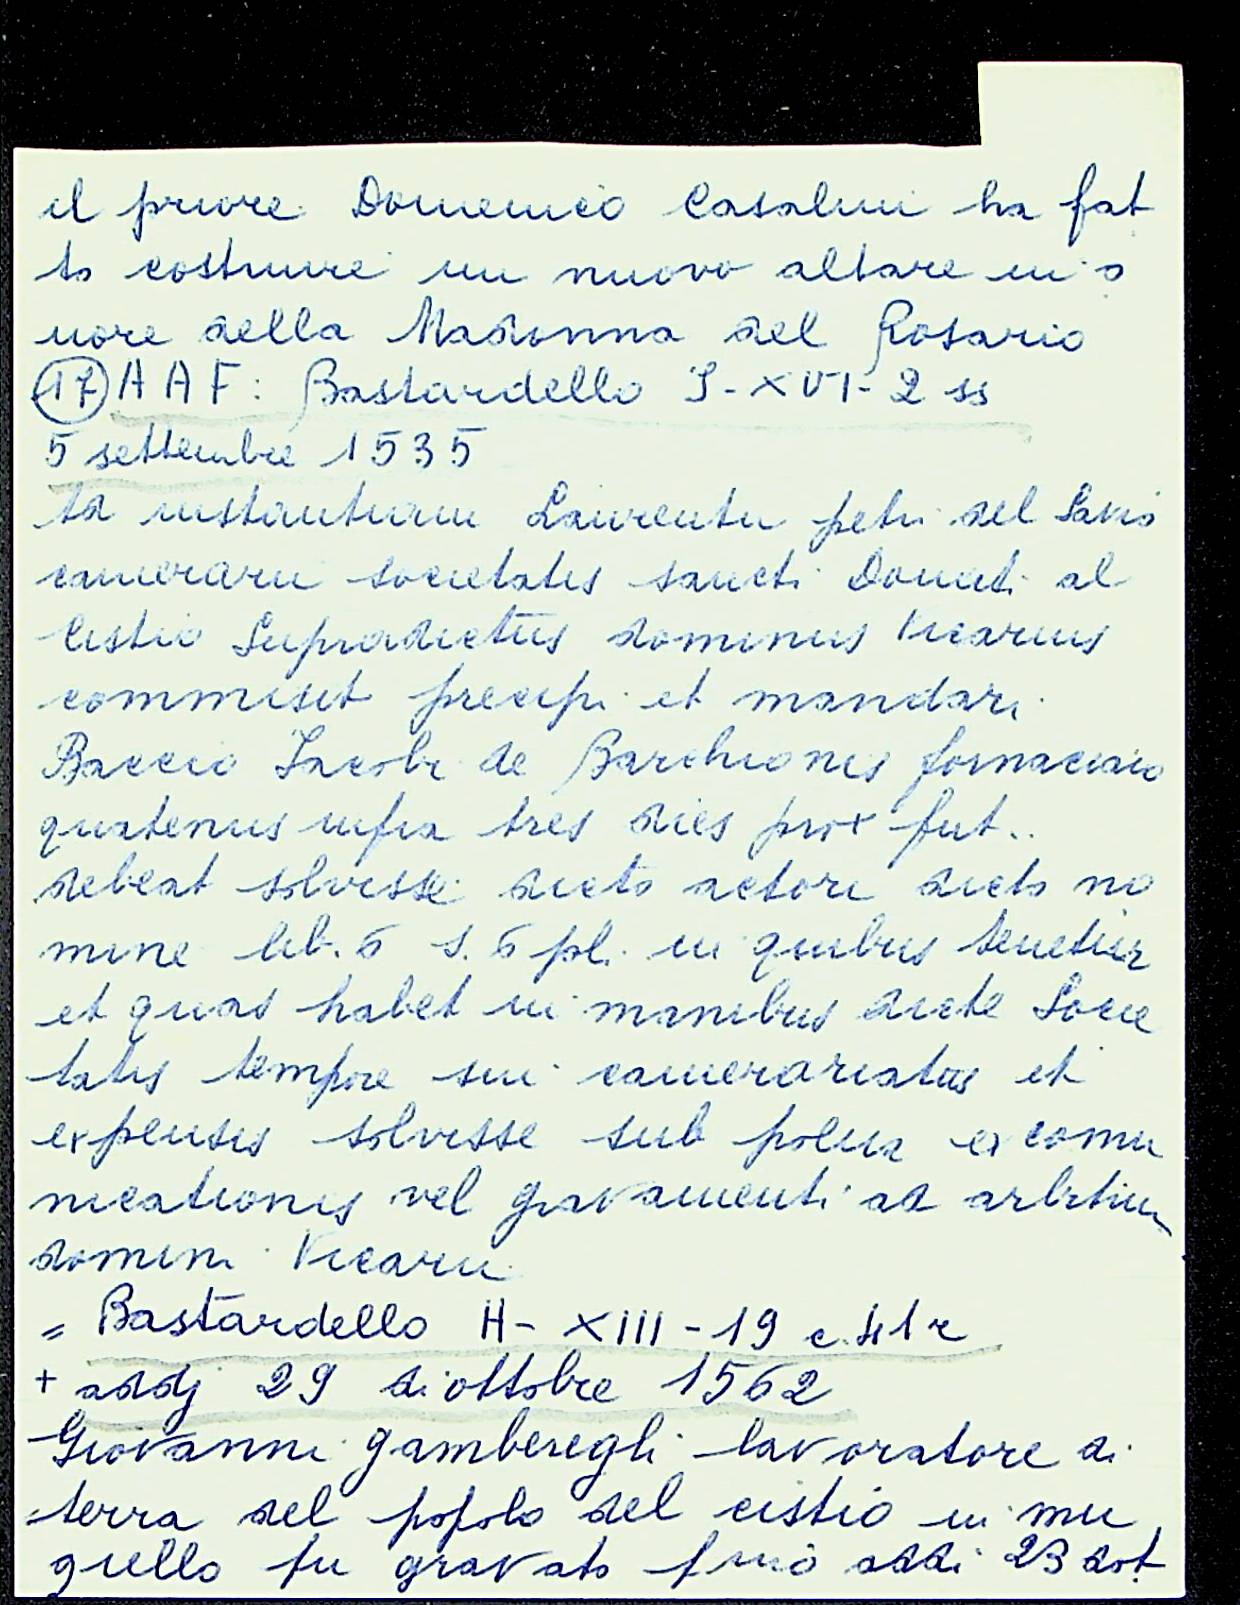 il priore Domenico Casalini ha fat
to costruire un nuovo altare in o
nore della Madonna del Rosario
(17) A A F: Bastardello I-XVI-2 ss
5 settembre 1535
Ad instantiam Laurentii petri del Savio
camerarii societatis sancti Donati al
Cistio Supradictus dominus Vicarius
commisit precipi et mandari
Baccio Jacobi de Barchionis fornaciaio
quatenus infra tres dies prox fut..
debeat solvisse dicto actori dicto no
mine lib. 6 s. 6 pl. in quibus tenetur
et quas habet in manibus dicte Socie
tatis tempore sui camerariatus et
expensis solvisse sub poena excomu
nicationis vel gravamenti ad arbitrium
domini Vicarii
= Bastardello H- XIII -19 c. 41r
+ addj 29 di ottobre 1562
Giovanni gamberegli lavoratore di
terra del popolo del cistio in mu
gello fu gravato fino addi 23 dot